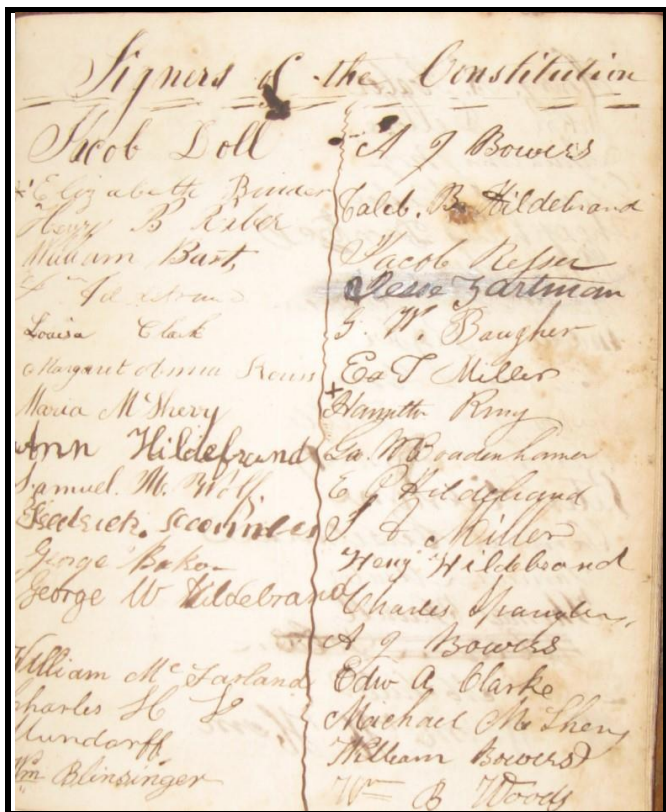 Signers of the Constitution
Jacob Doll
Elizabeth Binder
Henry B Reber
William Bast
Louisa Clark
Margaret Anna
Maria McShery
Ann Hildebrand
Samuel. M. Wolf
Frederick
George Baker
George W Hildebrand
William McFarland
Charles H L
Mundorff
Wm Blinsinger
A J Bowers
Caleb. B. Hildebrand
Jacob Resser
Jesse Zartman
G. W. Baugher
Ed T Miller
Geo. W Boadenhamer
E P Hildebrand
Miller
Henry Hildebrand
Charles Spangler
A J Bowers
Edw A Clarke
Michael McShery
William Bowers
Wm B Woods